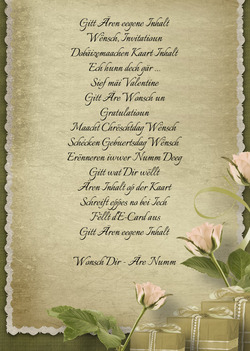 Gitt Ären eegene Inhalt
Wënsch, Invitatioun
Dobäizemaachen Kaart Inhalt
Ech hunn dech gär ...
Sief mäi Valentine
Gitt Äre Wonsch un
Gratulatioun
Maacht Chrëschtdag Wënsch
Schécken Gebuertsdag Wënsch
Erënneren iwwer Numm Deeg
Gitt wat Dir wëllt
Ären Inhalt op der Kaart
Schreift eppes no bei Iech
Fëllt d'E-Card aus
Gitt Ären eegene Inhalt
Wonsch Dir - Äre Numm